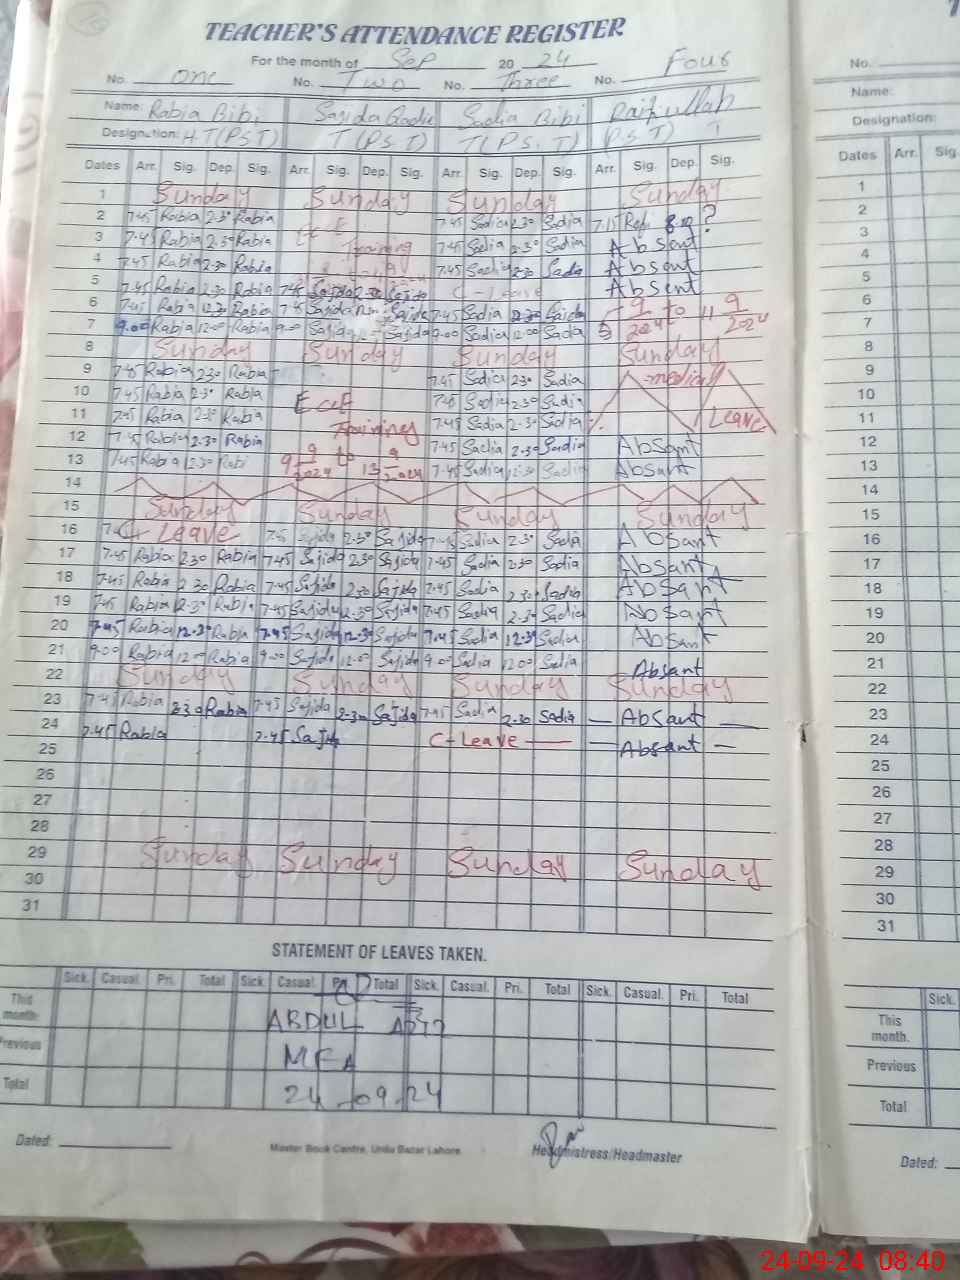 TEACHER'S ATTENDANCE REGISTER
For the month of Sep 20 24
No. One No. Two No. Three No. Four No.
Name: Rabia Bibi Sajida Sadia Bibi Name:
Designation: H.T(P.S.T) T(P.S.T) T(P.S.T) (P.S.T) T Designation:
Dates Arr. Sig. Dep. Sig. Arr. Sig. Dep. Sig. Arr. Sig. Dep. Sig. Arr. Sig. Dep. Sig. Dates Arr. Sig.
1 Sunday Sunday Sunday Sunday 1
2 7.45 Rabia 2.30 Rabia 7.45 Sadia 2.30 Sadia 7.15 ? 2
3 7.45 Rabia 2.30 Rabia ECE Training 7.45 Sadia 2.30 Sadia Absent 3
4 7.45 Rabia 2.30 Rabia 7.45 Sadia 2.30 Sadia Absent 4
5 7.45 Rabia 2.30 Rabia 7.45 Sajida 2.30 Sajida C-Leave Absent 5
6 7.45 Rabia 12.30 Rabia 7.45 Sajida Sajida 7.45 Sadia Sadia 9/2024 to 11 9/2024 6
7 9.00 Rabia 12.00 Rabia 9.00 Sajida Sajida 9.00 Sadia 12.00 Sadia 7
8 Sunday Sunday Sunday Sunday 8
9 7.45 Rabia 2.30 Rabia 7.45 Sadia 2.30 Sadia medical 9
10 7.45 Rabia 2.30 Rabia ECE 7.45 Sadia 2.30 Sadia 10
11 7.45 Rabia 2.30 Rabia Training 7.45 Sadia 2.30 Sadia Leave 11
12 7.45 Rabia 2.30 Rabia 7.45 Sadia 2.30 Sadia Absant 12
13 7.45 Rabia 2.30 Rabi 9 9/2024 to 13 9/2024 7.45 Sadia 12.30 Sadia Absant 13
14 14
15 Sunday Sunday Sunday Sunday 15
16 C-Leave 7.45 Sajida 2.30 Sajida 7.45 Sadia 2.30 Sadia Absant 16
17 7.45 Rabia 2.30 Rabia 7.45 Sajida 2.30 Sajida 7.45 Sadia 2.30 Sadia Absant 17
18 7.45 Rabia 2.30 Rabia 7.45 Sajida 2.30 Sajida 7.45 Sadia 2.30 Sadia Absant 18
19 7.45 Rabia 2.30 Rabia 7.45 Sajida 2.30 Sajida 7.45 Sadia 2.30 Sadia Absant 19
20 7.45 Rabia 12.30 Rabia 7.45 Sajida 12.30 Sajida 7.45 Sadia 12.30 Sadia Absant 20
21 9.00 Rabia 12.00 Rabia 9.00 Sajida 12.00 Sajida 9.00 Sadia 12.00 Sadia Absant 21
22 Sunday Sunday Sunday Sunday 22
23 7.45 Rabia 2.30 Rabia 7.45 Sajida 2.30 Sajida 7.45 Sadia 2.30 Sadia — Absant — 23
24 7.45 Rabia 7.45 Sajida C-Leave — — Absant — 24
25 25
26 26
27 27
28 28
29 Sunday Sunday Sunday Sunday 29
30 30
31 31
STATEMENT OF LEAVES TAKEN.
Sick. Casual. Pri. Total Sick. Casual. Total Sick. Casual. Pri. Total Sick. Casual. Pri. Total Sick.
This month. ABDUL This month.
Previous MEA Previous
Total 24-09-24 Total
Dated: Master Book Centre, Urdu Bazar Lahore. Headmistress/Headmaster Dated:
24-09-24 08:40